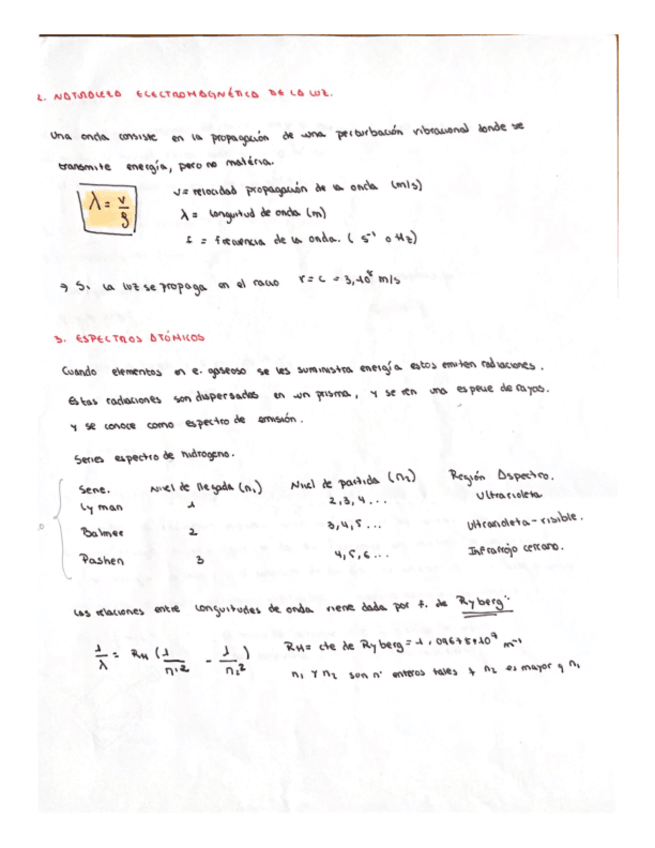 2. NATURALEZA ELECTROMAGNÉTICA DE LA LUZ.
Una onda consiste en la propagación de una perturbación vibracional donde se
transmite energía, pero no materia.
λ = v/f
v = velocidad propagación de la onda (m/s)
λ = longuitud de onda (m)
f = frecuencia de la onda. ( s⁻¹ o Hz)
→ Si la luz se propaga en el vacio v = c = 3,·10⁸ m/s
3. ESPECTROS ATÓMICOS
Cuando elementos en e. gaseoso se les suministra energía estos emiten radiaciones.
Estas radiaciones son dispersadas en un prisma, y se ven una especie de rayas.
y se conoce como espectro de emisión.
Series espectro de hidrogeno.
Serie. Nivel de llegada (n₁) Nivel de partida (n₂) Región Aspectro.
Lyman 1 2,3,4... Ultravioleta
Balmer 2 3,4,5... Ultravioleta-visible.
Pashen 3 4,5,6... Infrarrojo cercano.
Las relaciones entre longuitudes de onda viene dada por f. de Ryberg:
1/λ = RH (1/n₁² - 1/n₂²) RH = cte de Ryberg = 1,09678·10⁷ m⁻¹
n₁ y n₂ son nº enteros tales q n₂ es mayor q n₁